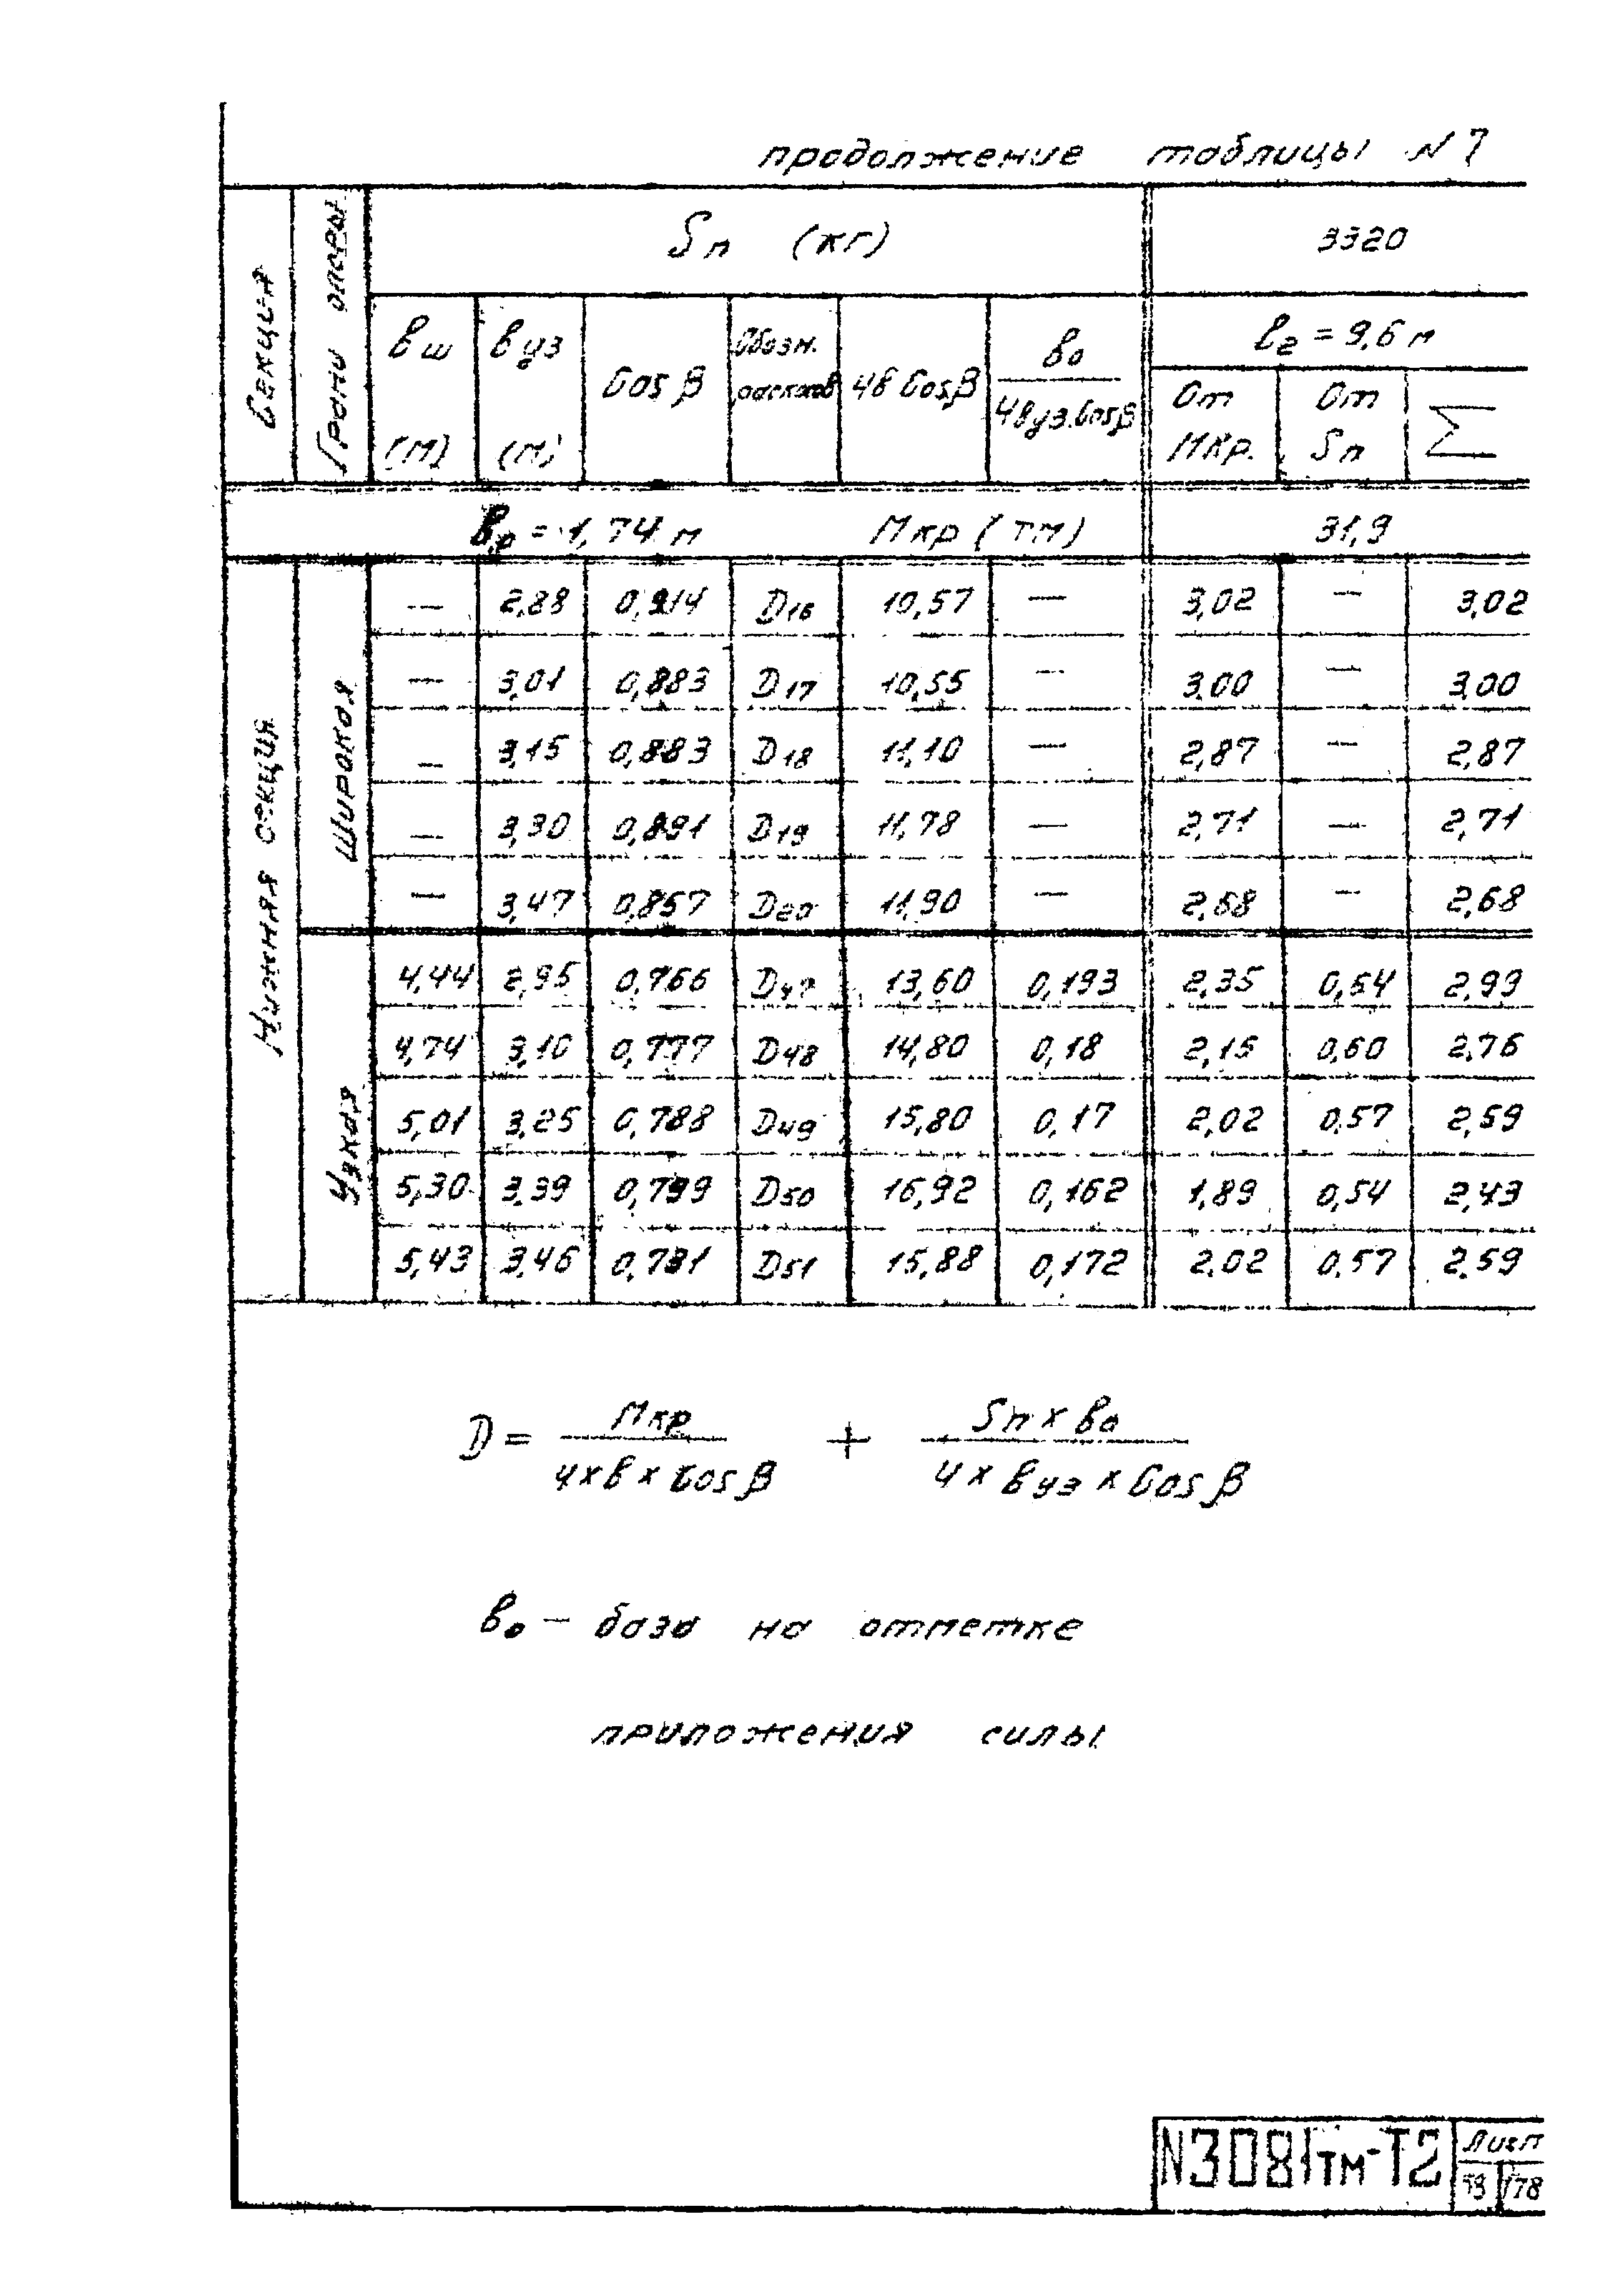 продолжение таблицы N 7
Секция Грани опоры Sп (кг) 3320
bш (м) bуз (м) Cosβ Обозн. раскосов 4b Cosβ b₀ / 4bуз.Cosβ l₂ = 9,6 м
От Мкр. От Sп Σ
bр = 1,74 м Мкр (тм) 31,9
Нижняя секция
Широкая
— 2,88 0,914 D16 10,57 — 3,02 — 3,02
— 3,01 0,883 D17 10,55 — 3,00 — 3,00
— 3,15 0,883 D18 11,10 — 2,87 — 2,87
— 3,30 0,891 D19 11,78 — 2,71 — 2,71
— 3,47 0,857 D20 11,90 — 2,68 — 2,68
Узкая
4,44 2,95 0,766 D47 13,60 0,193 2,35 0,64 2,99
4,74 3,10 0,777 D48 14,80 0,18 2,15 0,60 2,76
5,01 3,25 0,788 D49 15,80 0,17 2,02 0,57 2,59
5,30 3,39 0,799 D50 16,92 0,162 1,89 0,54 2,43
5,43 3,46 0,731 D51 15,88 0,172 2,02 0,57 2,59
D = Мкр / 4×b×Cosβ + Sп×b₀ / 4×bуз×Cosβ
b₀ – база на отметке
приложения силы
N3081тм-Т2 Лист
178